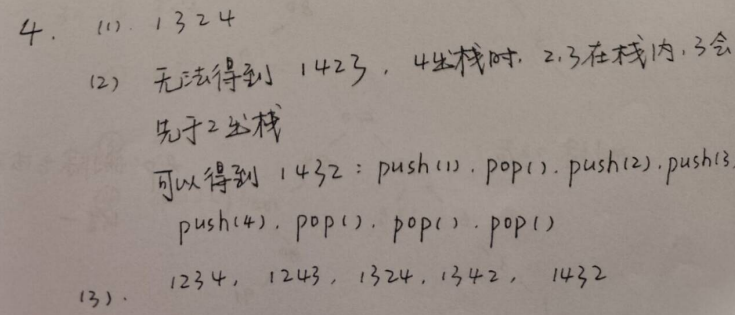 4. (1). 1324
(2) 无法得到 1423, 4出栈时, 2.3在栈内, 3会
先于2出栈
可以得到 1432: push(1). pop(). push(2). push(3.
push(4). pop(). pop(). pop()
(3). 1234, 1243, 1324, 1342, 1432